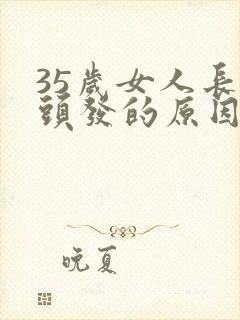 35歲女人長
頭發的原因
晚夏